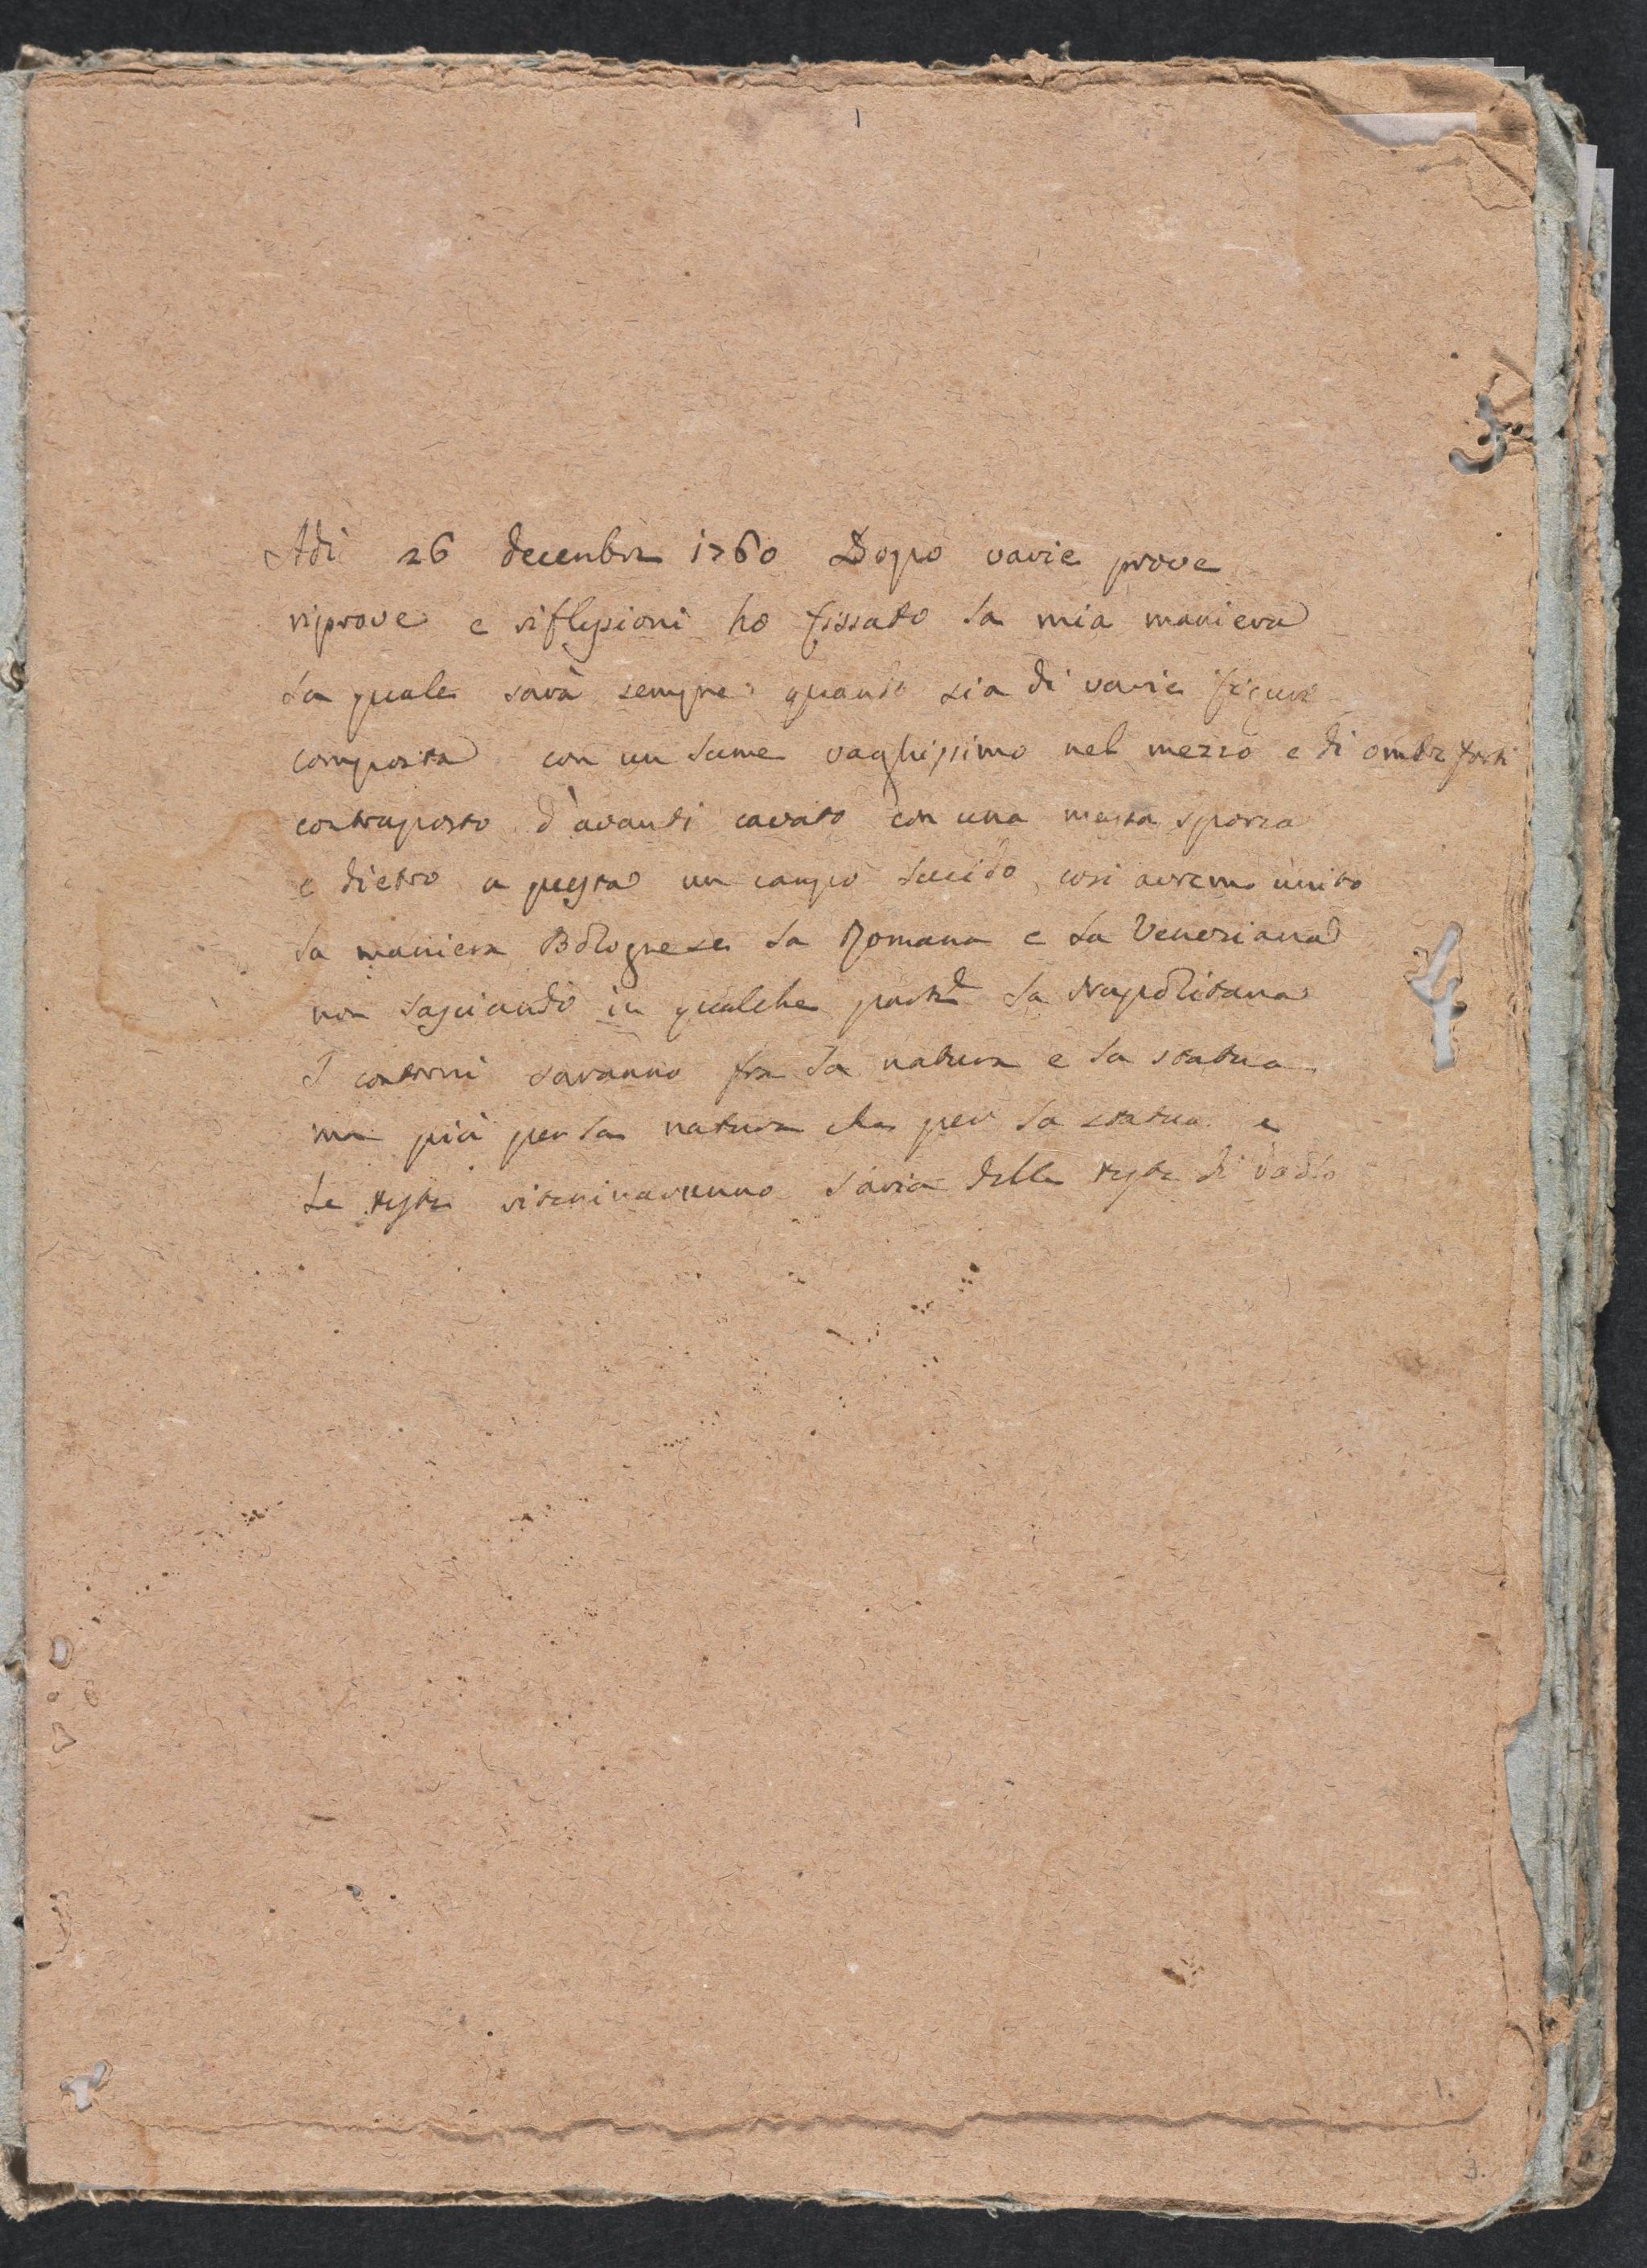 1
Adi 26 decembre 1760 Dopo varie prove
riprove e riflessioni ho fissato la mia maniera
la quale sarà sempre quando sia di varie figure
composta con un lume vaghissimo nel mezzo e di ombre forti
contraposto d'avanti cavato con una mezza sporca
e dietro a questa un campo lucido, cosi avremo unito
la maniera Bolognese la Romana e la Veneziana
non lasciando in qualche parte la Napolitana
I contorni saranno fra la natura e la statua
ma più per la natura che per la statua e
Le teste riteniranno l'aria delle teste di
1.
3.